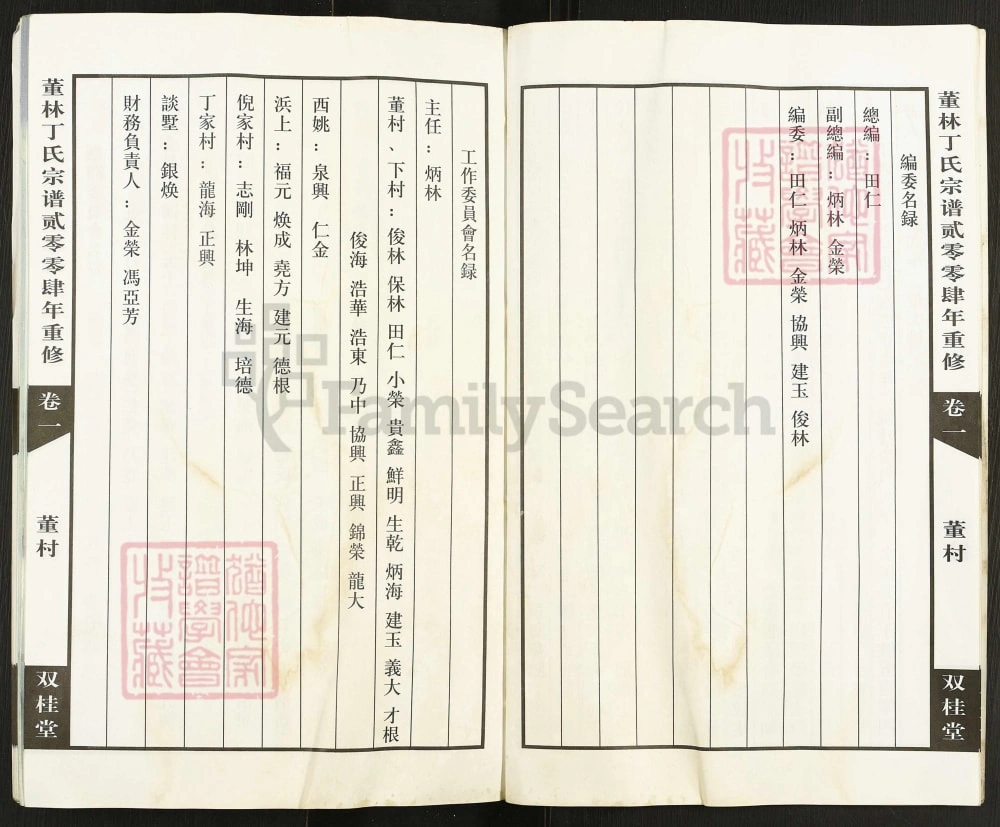 董林丁氏宗谱贰零零肆年重修
卷一
董村
双桂堂
編委名録
總編：田仁
副總編：炳林 金榮
編委：田仁 炳林 金榮 協興 建玉 俊林
工作委員會名録
主任：炳林
董村、下村：俊林 保林 田仁 小榮 貴鑫 鮮明 生乾 炳海 建玉 義大 才根
俊海 浩華 浩東 乃中 協興 正興 錦榮 龍大
西姚：泉興 仁金
浜上：福元 焕成 堯方 建元 德根
倪家村：志剛 林坤 生海 培德
丁家村：龍海 正興
談墅：銀焕
財務負責人：金榮 馮亞芳
董林丁氏宗谱贰零零肆年重修
卷一
董村
双桂堂
FamilySearch
譜學會
收藏
譜學會
收藏